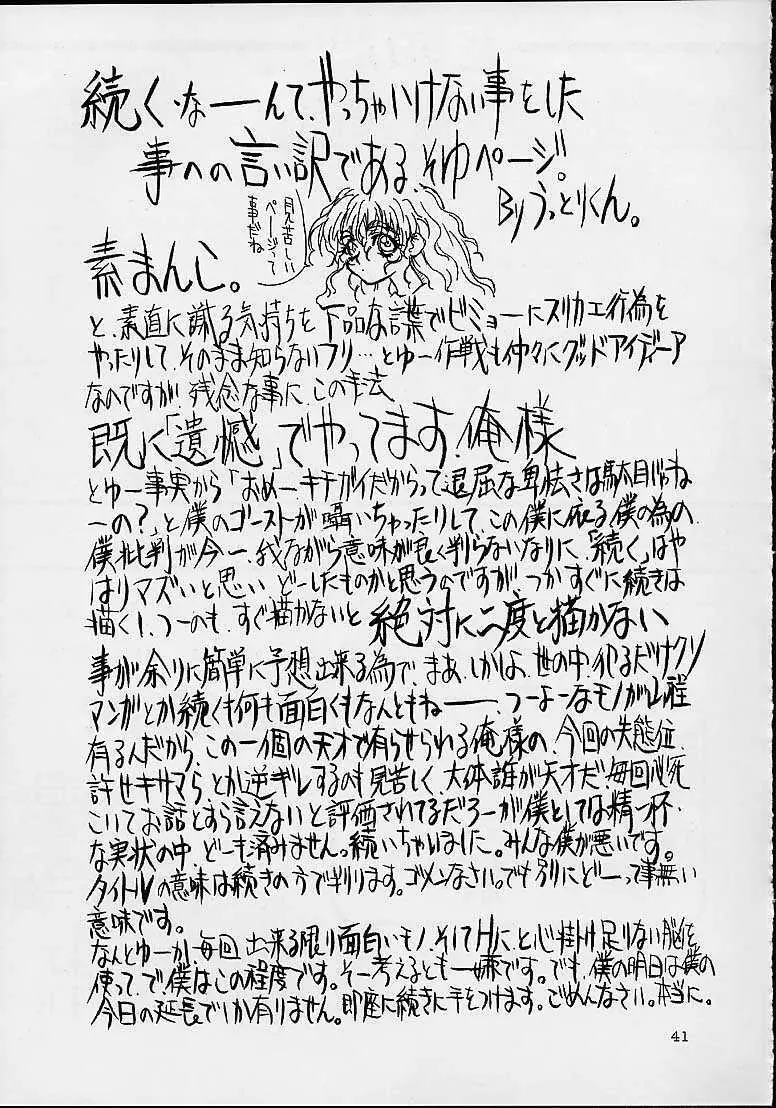 続く、なーーんて、やっちゃいけない事をした
事への言い訳である、そゆページ。
By うっとりくん。
見苦しい
ページって
事だね
素まんじ。
と、素直に謝る気持ちを下品な言葉でビミョーにスリカエ行為を
やったりして、そのまま知らないフリ…とゆー作戦も仲々にグッドアイディーア
なのですが、残念な事に、この手法
既に「遺憾」でやってます、俺様
とゆー事実から「おめー、キチガイだからって退屈な卑怯さは駄目じゃね
ーの?」と僕のゴーストが囁いちゃったりして、この僕に依る僕の為の、
僕批判が今一、我ながら意味が良く判らないなりに、「続く」はや
はりマズいと思い、どーしたものかと思うのですが、つかすぐに続きは
描く!、つーのも、すぐ描かないと 絶対に二度と描かない
事が余りに簡単に予想出来る為で、まあ、しかしよ、世の中、犯るだけクソ
マンガとか続くも何も面白くもなんともねーーー、つーよーなモノが山程
有るんだから、この一個の天才で有らせられる俺様の、今回の失態位、
許せキサマら、とか逆ギレするのも見苦しく、大体誰が天才だ、毎回必死
こいてお話とすら言えないと評価されてるだろーが僕としては精一杯、
な実状の中、どーも済みません。続いちゃいました。みんな僕が悪いです。
タイトルの意味は続きの方で判ります。ゴメンなさい。でも別にどーって事無い
意味です。
なんとゆーか、毎回、出来る限り面白いモノ、そしてHに、と心掛け足りない脳を
使って、で、僕はこの程度です。そー考えるとも一嫌です。でも、僕の明日は僕の
今日の延長でしか有りません。即座に続きに手をつけます。ごめんなさい。本当に。
41